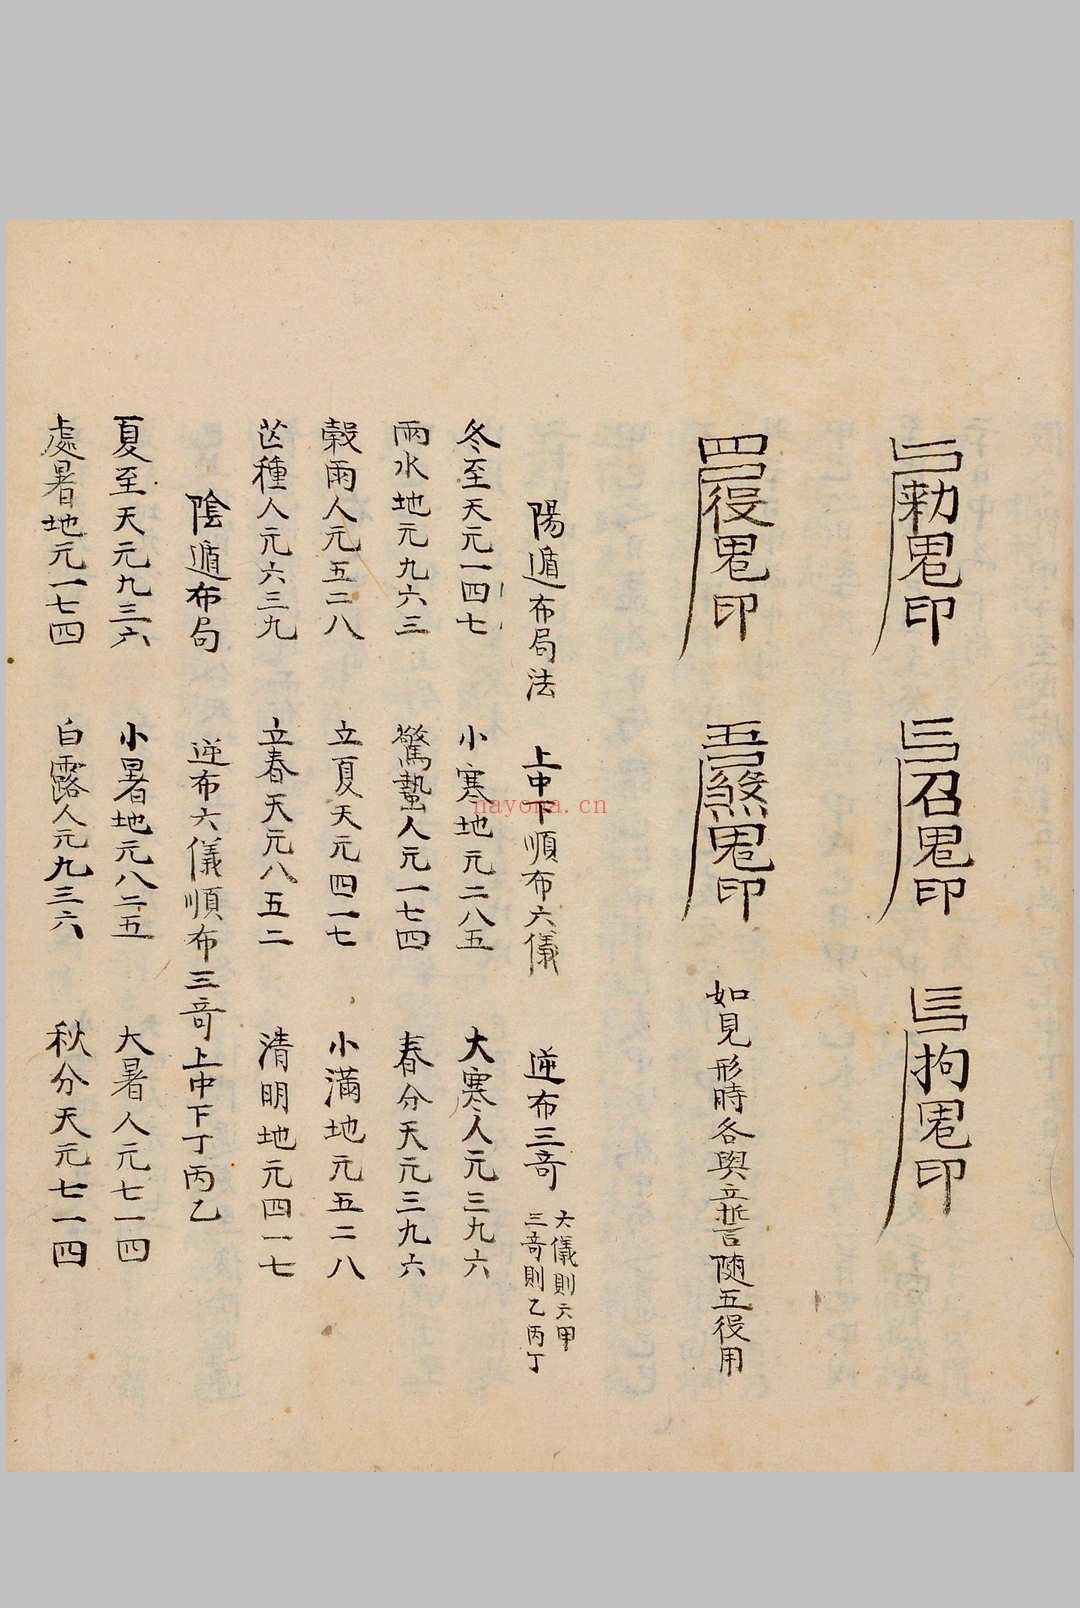 勅鬼印　召鬼印　拘鬼印
四役鬼印　五煞鬼印　如見形時各與立誓隨五役用
陽遁布局法　上中下順布六儀　逆布三竒　六儀則六甲
三竒則乙丙丁
冬至天元一四七　小寒地元二八五　大寒人元三九六
雨水地元九六三　驚蟄人元一七四　春分天元三九六
榖雨人元五二八　立夏天元四一七　小滿地元五二八
芒種人元六三九　立春天元八五二　清明地元四一七
陰遁布局　逆布六儀順布三竒上中下丁丙乙
夏至天元九三六　小暑地元八二五　大暑人元七一四
處暑地元一七四　白露人元九三六　秋分天元七一四
nayona.cn